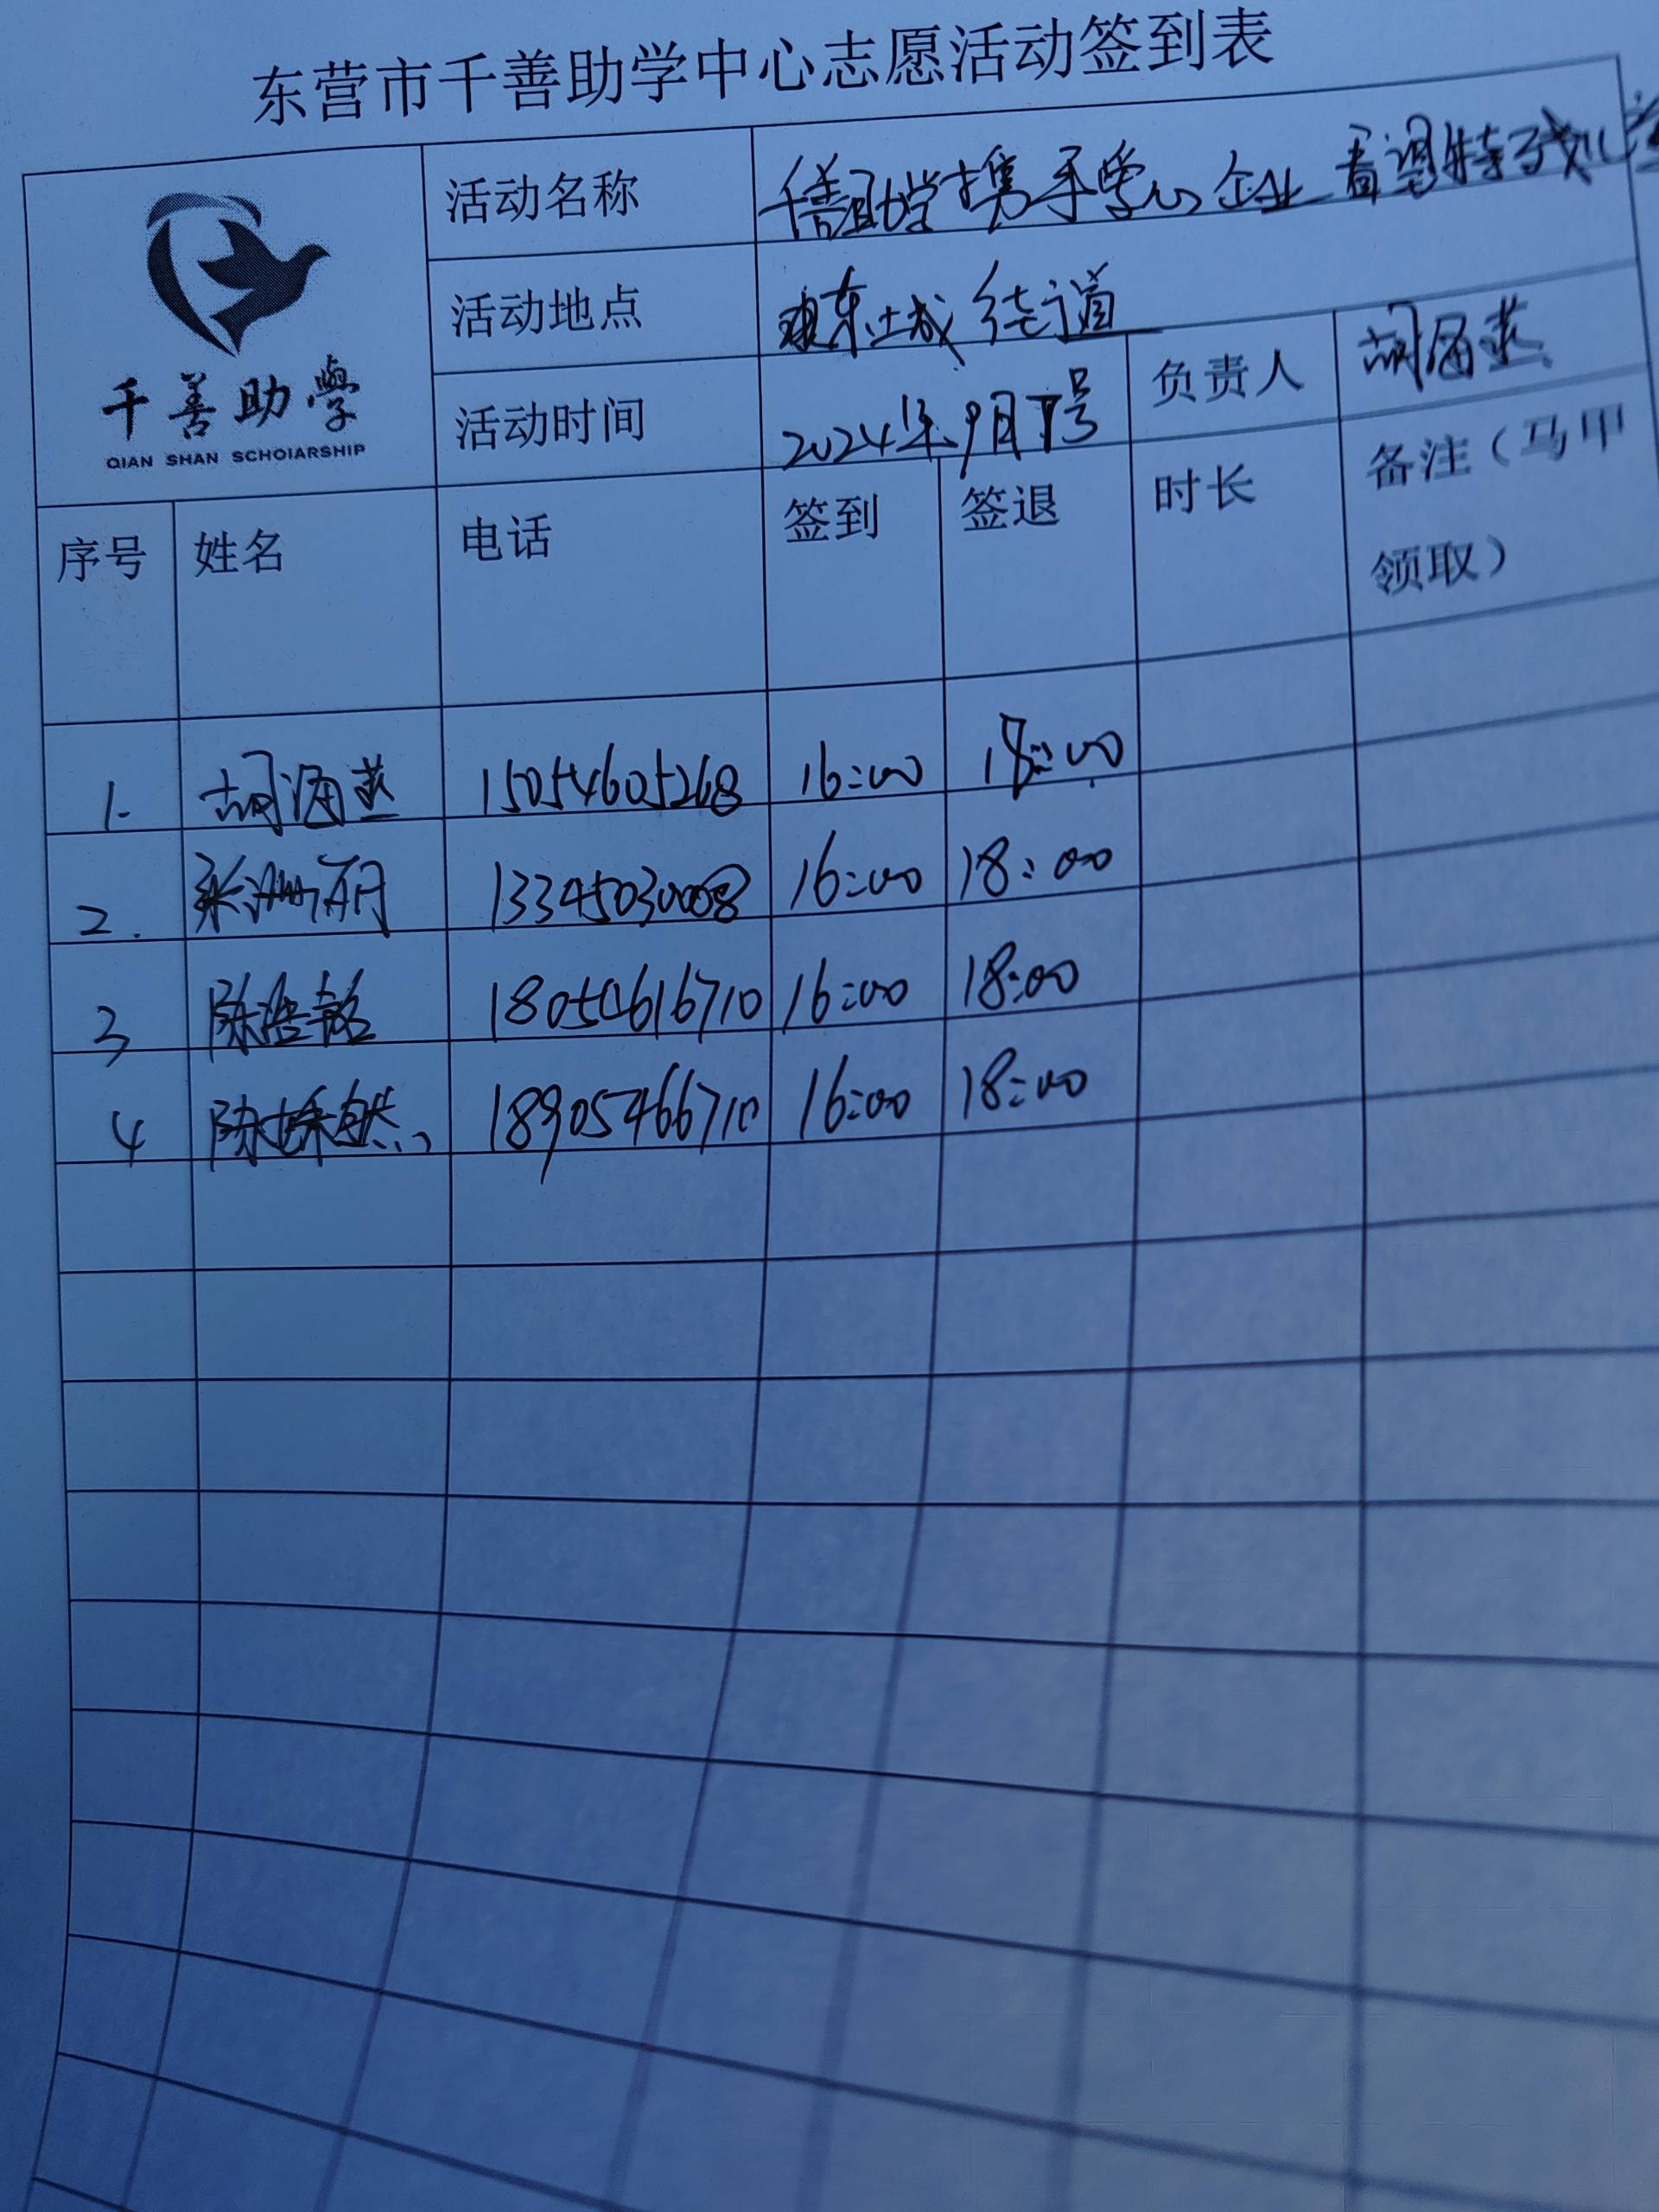 东营市千善助学中心志愿活动签到表
千善助學
QIAN SHAN SCHOIARSHIP
活动名称 千善助学携手 企业看望特
活动地点 东城街道
活动时间 2024年9月 号 负责人 胡海燕
序号 姓名 电话 签到 签退 时长 备注(马甲
领取)
1. 胡海燕 15054605268 16:00 18:00
2. 13345030008 16:00 18:00
3 陈浩铭 18054616710 16:00 18:00
4 陈 然 18905466710 16:00 18:00